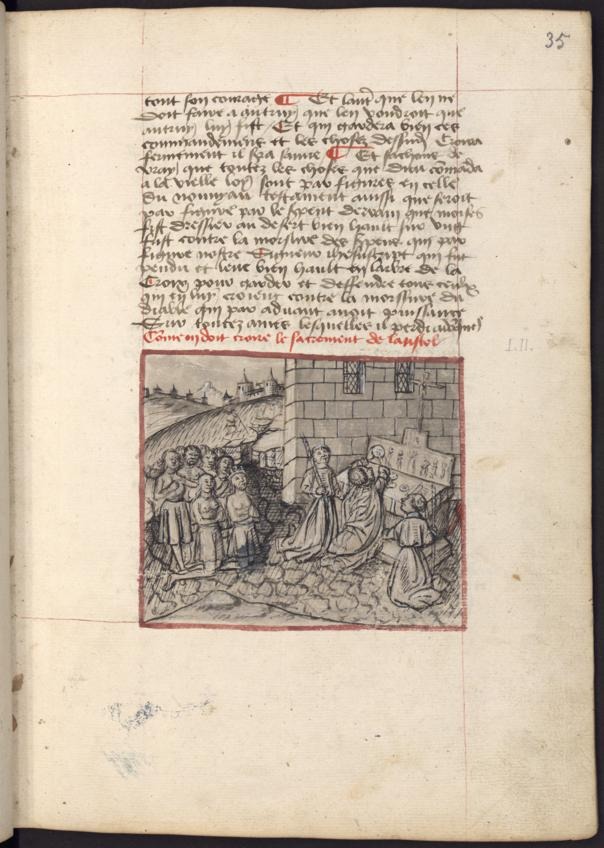 35
tout son courage Et lautre que len ne
doit faire a autruy que len vondroit que
autruy luy fist Et qui gardera bien ces
commandemens et les choses dessusd Croira
fermement il sera sauve Et sachons de
vray que toutez les choses que dieu comāda
a la vielle loy sont par figures en celle
du nouveau testament ainsi que seroit
par figure par le serpent darain que moises
fist dressier au desert bien hault sur ung
fust contre la morsure des serpens qui par
figure nostre Seigneur ihesucript qui fut
pendu et leve bien hault en larbre de la
Croix pour garder et deffendre tous ceulx
qui en luy croient contre la morssure du
diable qui par advant avoit puissance
Sur toutez ames lesquelles il perdi
Cōme on doit croire le sacrement de lautel
L.II.